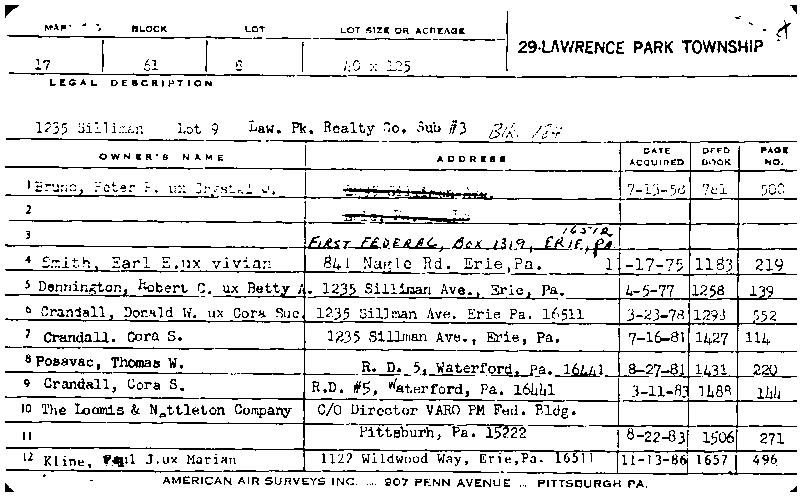 BLOCK LOT LOT SIZE OR ACREAGE
29-LAWRENCE PARK TOWNSHIP
17 61 8 40 x 125
LEGAL DESCRIPTION
1235 Silliman Lot 9 Law. Pk. Realty Co. Sub #3 Blk. 184
OWNER'S NAME ADDRESS DATE ACQUIRED DEED BOOK PAGE NO.
1 Bruno, Peter P. ux Crystal J. 7-13-56 781 500
2
3 FIRST FEDERAL, BOX 1319, ERIE, PA 16512
4 Smith, Earl E.ux vivian 841 Nagle Rd. Erie,Pa. 11-17-75 1183 219
5 Dennington, Robert C. ux Betty A. 1235 Silliman Ave., Erie, Pa. 4-5-77 1258 139
6 Crandall, Donald W. ux Cora Sue 1235 Sillman Ave. Erie Pa. 16511 3-23-78 1293 552
7 Crandall. Cora S. 1235 Sillman Ave., Erie, Pa. 7-16-81 1427 114
8 Posavac, Thomas W. R. D. 5, Waterford, Pa. 16441 8-27-81 1431 220
9 Crandall, Cora S. R.D. #5, Waterford, Pa. 16441 3-11-83 1488 144
10 The Loomis & Nettleton Company C/O Director VARO PM Fed. Bldg.
11 Pittsburh, Pa. 15222 8-22-83 1506 271
12 Kline, Paul J.ux Marian 1122 Wildwood Way, Erie,Pa. 16511 11-13-86 1657 496
AMERICAN AIR SURVEYS INC. ... 907 PENN AVENUE ... PITTSBURGH PA.